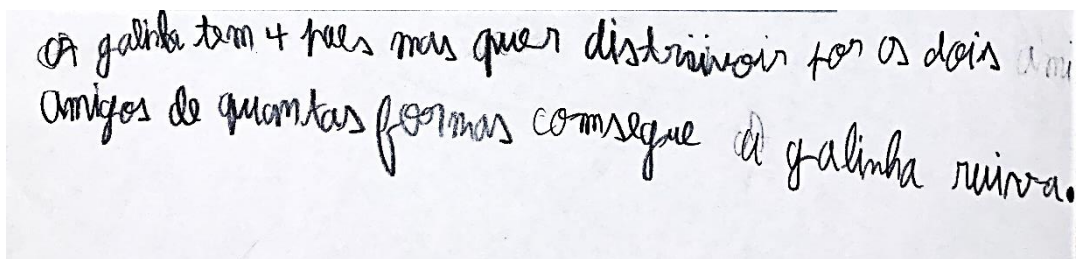 A galinha tem 4 paes mas quer distriivoir por os dois ami
amigos de quantas formas comsegue a galinha ruiva.